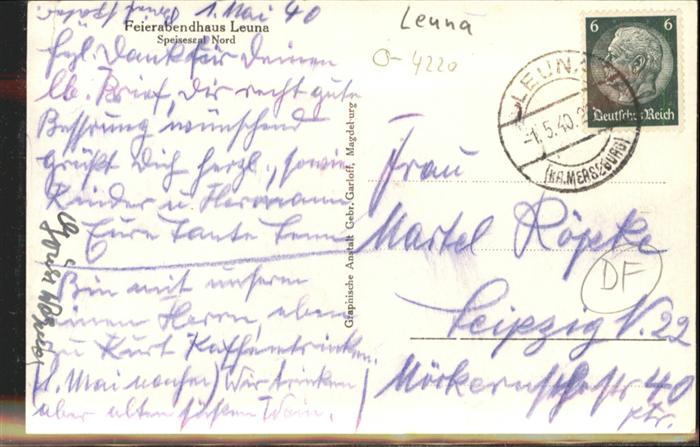 1. Mai 40
Feierabendhaus Leuna
Speisesaal Nord
Hzl. Dank für Deinen
lb. Brief, Dir recht gute
Besserung wünschend
grüßt Dich herzl., sowie
Kinder u. Hermann
Eure Tante
Bin mit unserm
Herren, eben
zu Kurt Kaffeetrinken.
(1. Mai Wir trinken
aber alten süßen Wein.
Graphische Anstalt Gebr. Garloff, Magdeburg
Leuna
O-4220
6 6
Deutsches Reich
LEUNA
-1.5.40.
(KR. MERSEBURG)
Frau
Martel Röpke
DF
Leipzig N. 22
Möckernschestr 40
ptr.